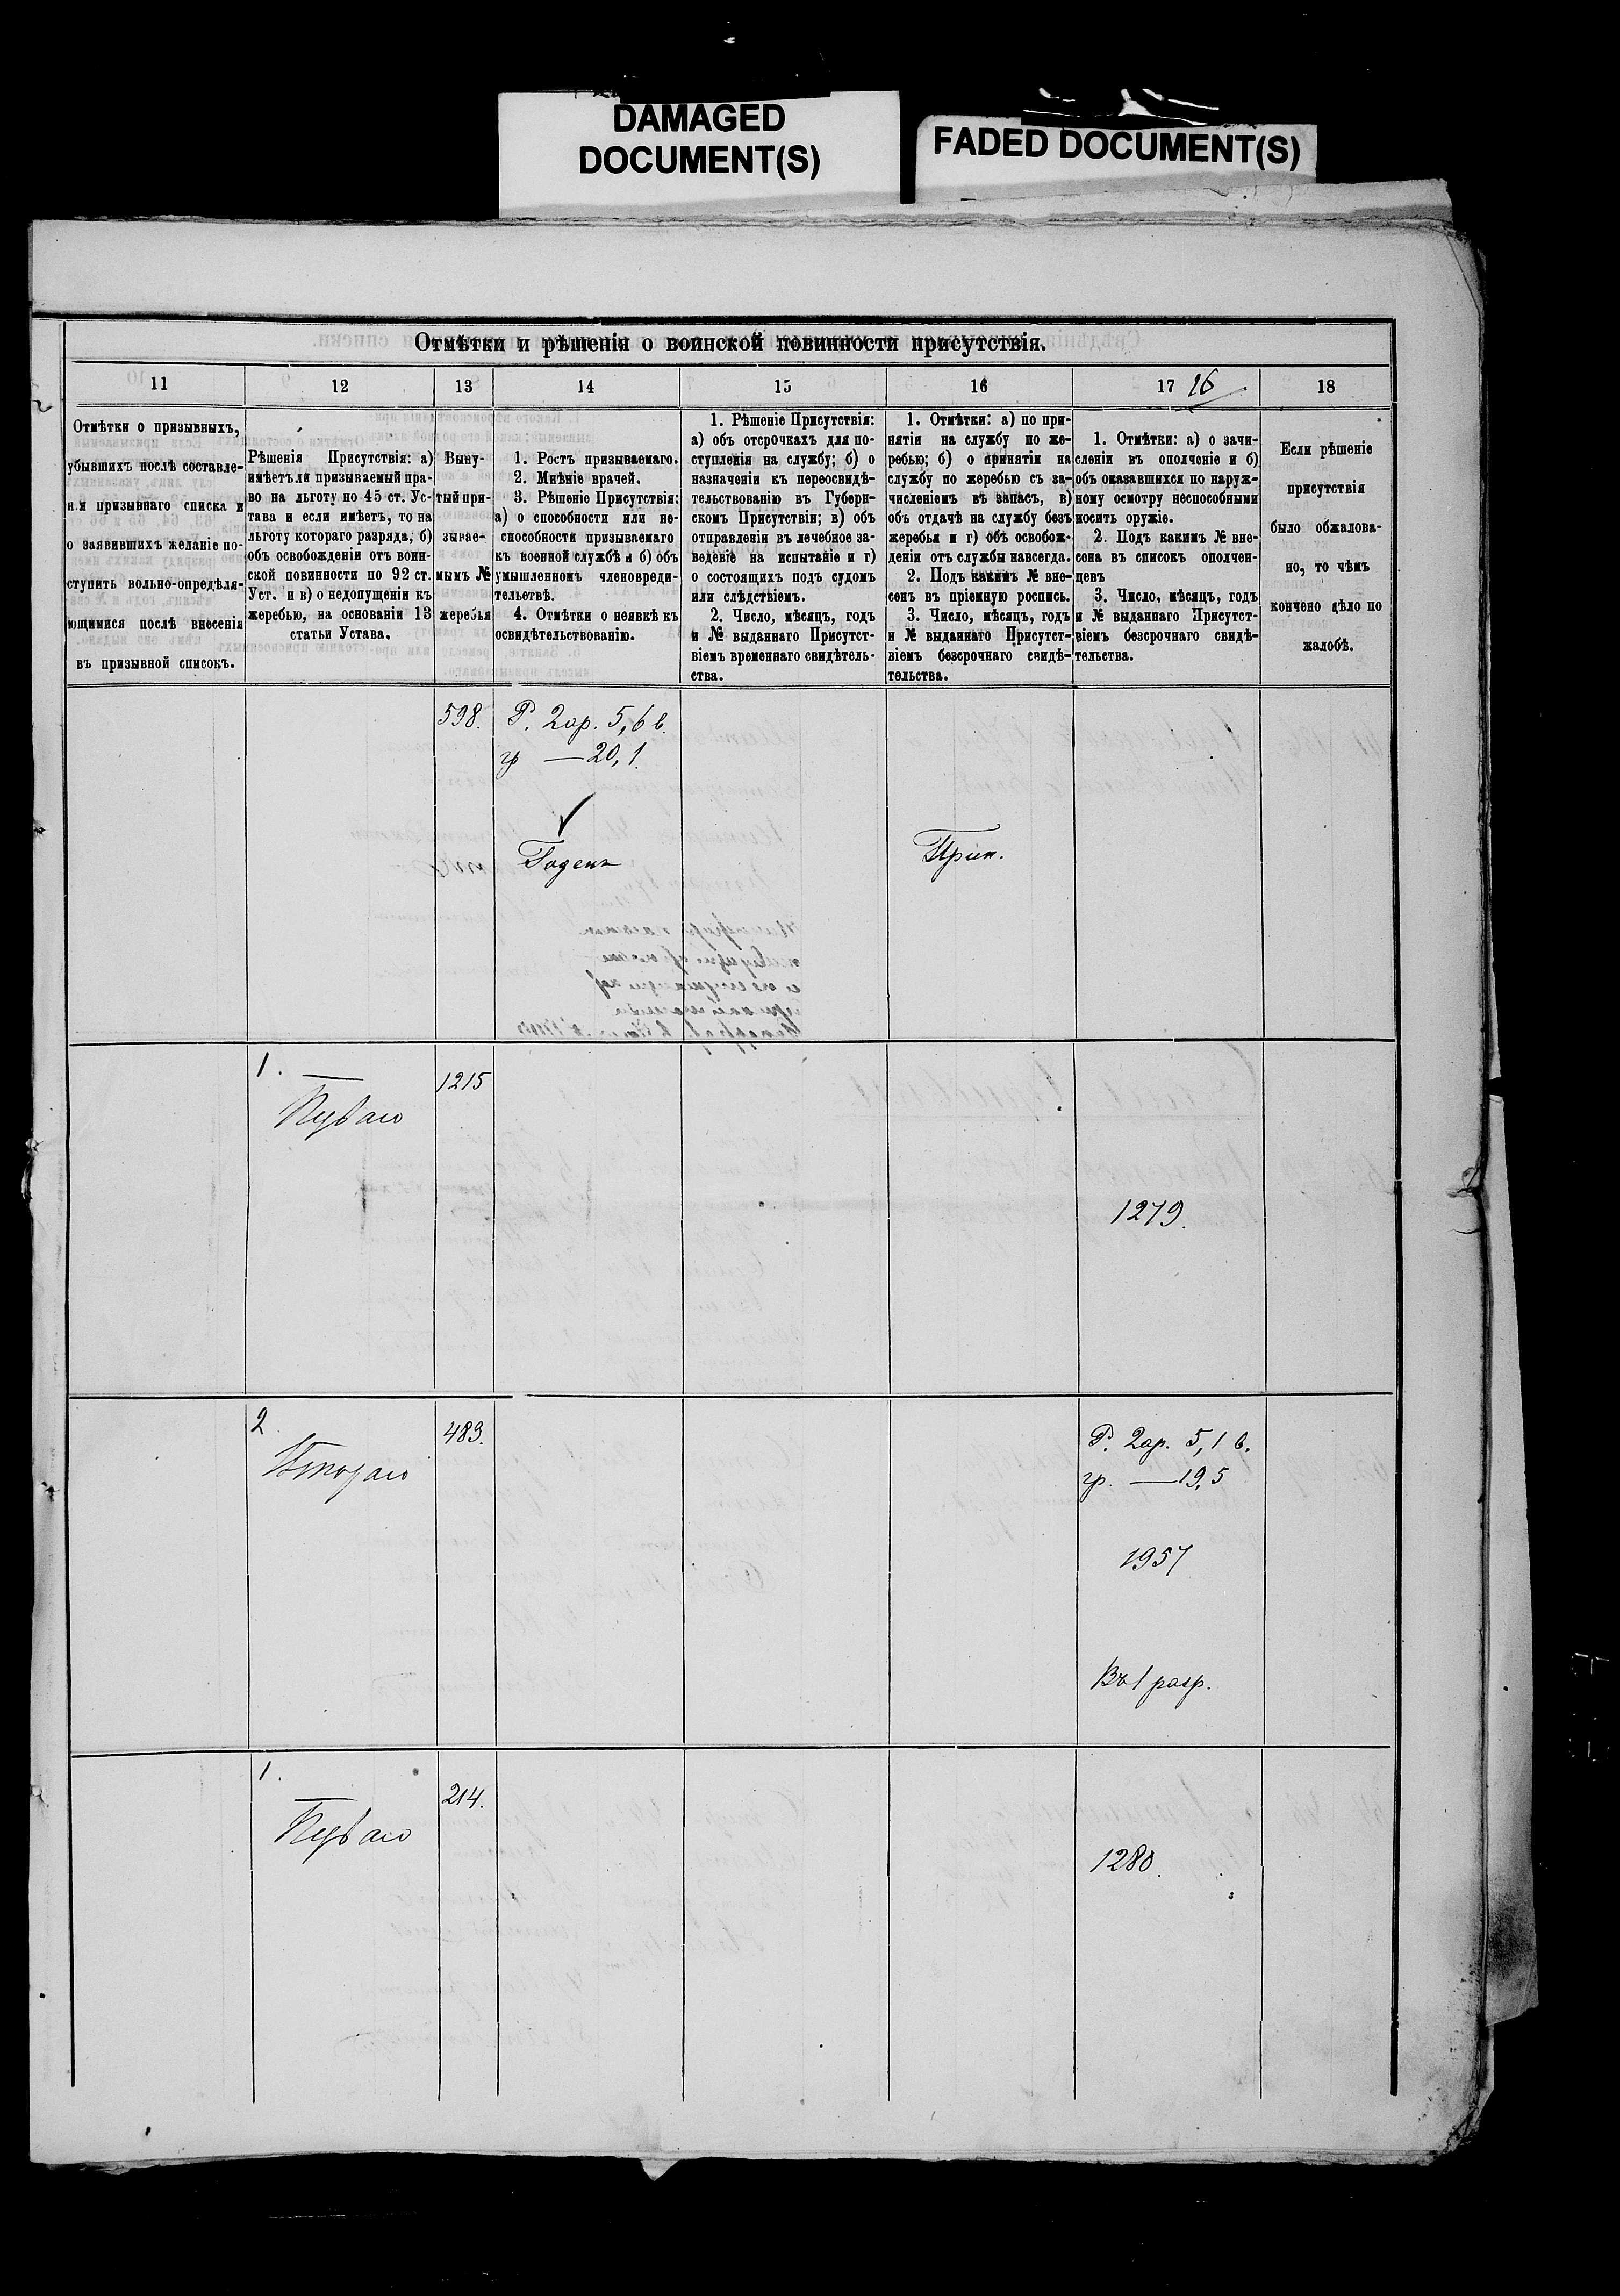 DAMAGED
DOCUMENT(S)
FADED DOCUMENT(S)
Отмѣтки и рѣшенія о воинской повинности присутствія.
11
12
13
14
15
16
17
26
18
Отмѣтки о призывныхъ,
убывшихъ послѣ составле-
н.я призывнаго списка и
о заявившихъ желаніе по-
ступить вольно-опредѣля-
ющимися послѣ внесенія
въ призывной списокъ.
Рѣшенія Присутствія: а)
имѣетъ ли призываемый пра-
во на льготу по 45 ст. Ус-
тава и если имѣетъ, то на
льготу котораго разряда, б)
объ освобожденіи отъ воин-
ской повинности по 92 ст.
Уст. и в) о недопущеніи къ
жеребью, на основаніи 13
статьи Устава.
Выну-
тый при-
зывае-
мымъ №
жеребья
1. Ростъ призываемаго.
2. Мнѣніе врачей.
3. Рѣшеніе Присутствія:
а) о способности или не-
способности призываемаго
къ военной службѣ и б) объ
умышленномъ членовреди-
тельетвѣ.
4. Отмѣтки о неявкѣ къ
освидѣтельствованію.
1. Рѣшеніе Присутствія:
а) объ отсрочкахъ для по-
ступленія на службу; б) о
назначеніи къ переосвидѣ-
тельствованію въ Губерн-
скомъ Присутствіи; в) объ
отправленіи въ лечебное за-
веденіе на испытаніе и г)
о состоящихъ подъ судомъ
или слѣдствіемъ.
2. Число, мѣсяцъ, годъ
и № выданнаго Присутст-
віемъ временнаго свидѣтель-
ства.
1. Отмѣтки: а) по при-
нятіи на службу по же-
ребью; б) о принятіи на
службу по жеребью съ за-
численіемъ въ запасъ, в)
объ отдачѣ на службу безъ
жеребья и г) объ освобож-
деніи отъ службы навсегда.
2. Подъ какимъ № вне-
сенъ въ пріемную роспись.
3. Число, мѣсяцъ, годъ
и № выданнаго Присутст-
віемъ безсрочнаго свидѣ-
тельства.
1. Отмѣтки: а) о зачи-
сленіи въ ополченіе и б)
объ оказавшихся по наруж-
ному осмотру неспособными
носить оружіе.
2. Подъ какимъ № вне-
сена въ списокъ ополчен-
цевъ
3. Число, мѣсяцъ, годъ
и № выданнаго Присутст-
віемъ безсрочнаго свидѣ-
тельства.
Если рѣшеніе
присутствія
было обжалова-
но, то чѣмъ
кончено дѣло по
жалобѣ.
598.
Р. 2ар. 5,6 в.
гр — 20,1.
Годенъ
Прин.
1.
Перваго
1215
1279.
2
Втораго
483.
Р. 2ар. 5,1 в.
гр. — 19,5
1957
Въ 1 разр.
1.
Перваго
214.
1280.